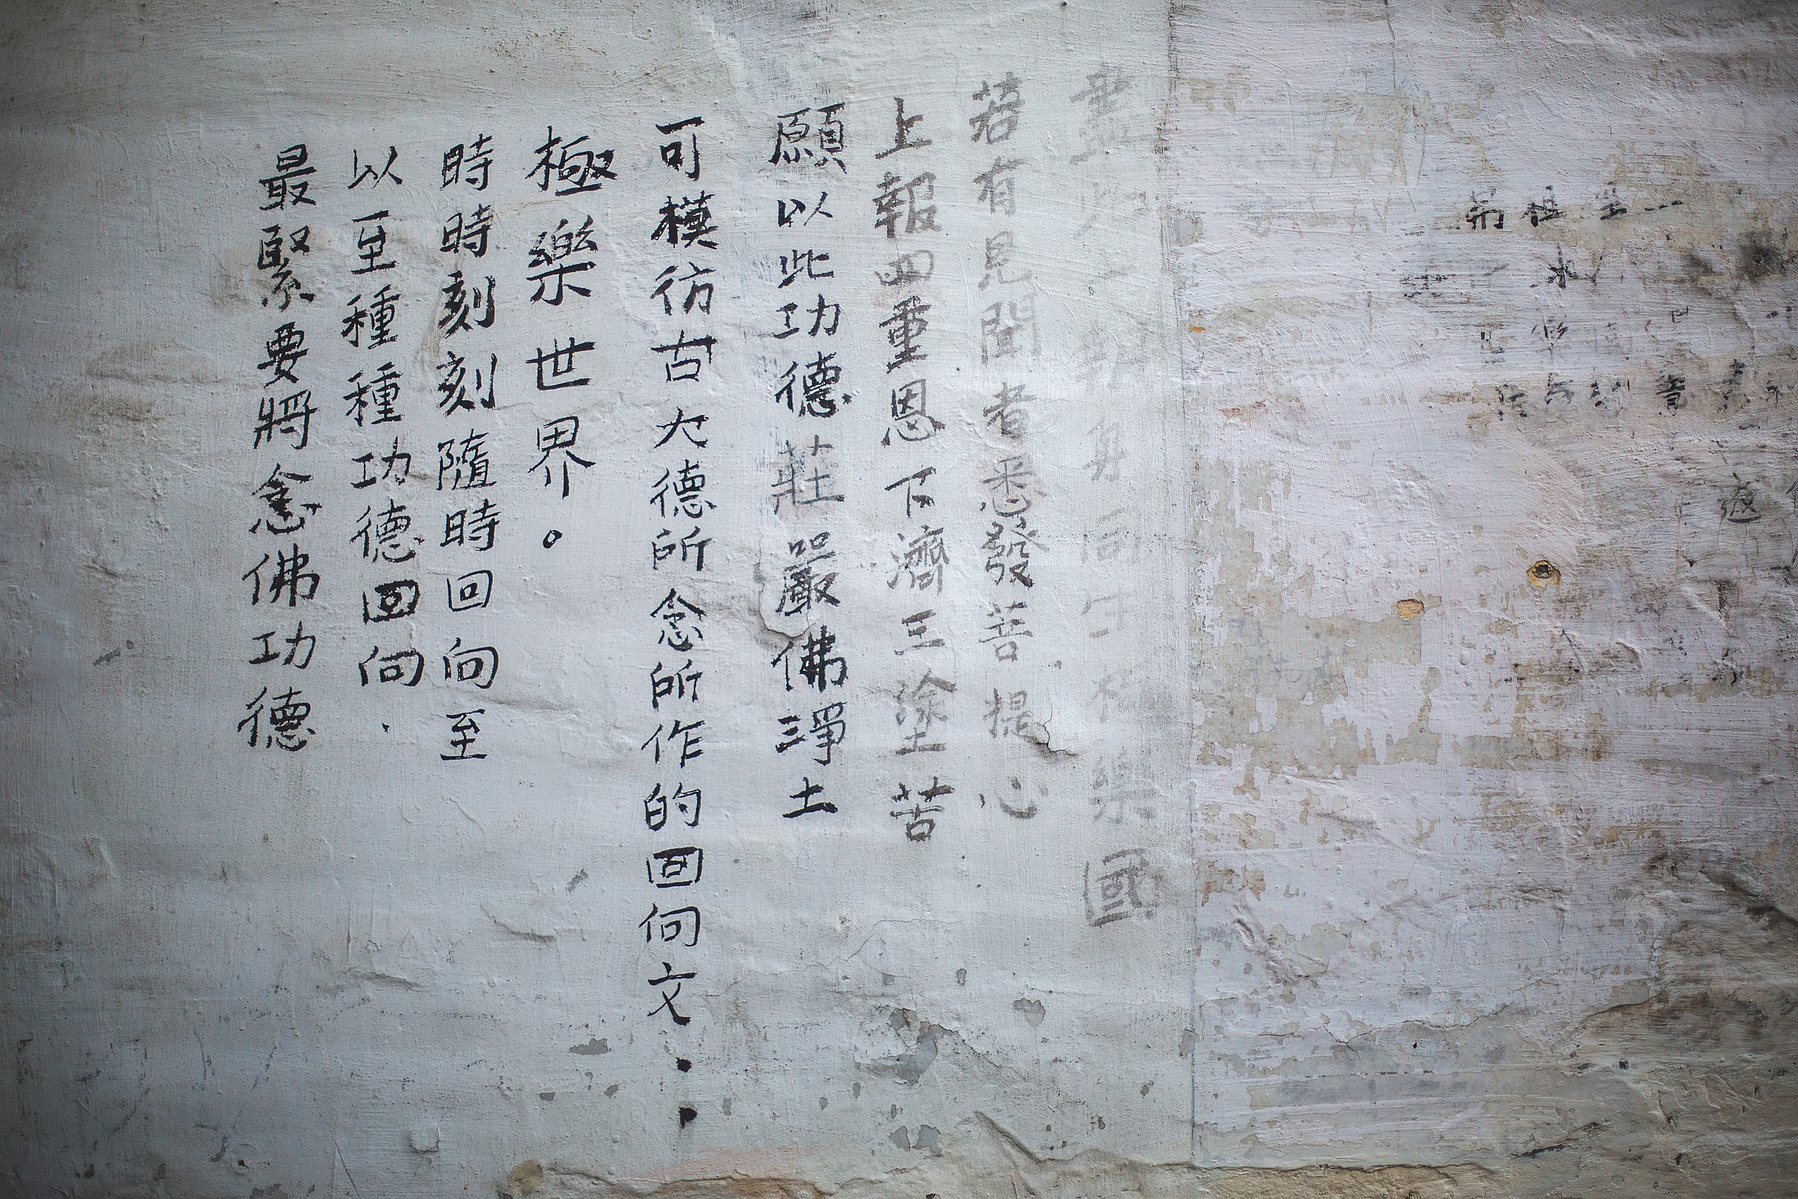 最緊要將念佛功德
以至種種功德回向.
時時刻刻隨時回向至
極樂世界。
可模彷古大德所念所作的回向文..
願以此功德莊嚴佛淨土
上報四重恩下濟三塗苦
若有見聞者悉發菩提心
盡此一報身同生極樂國